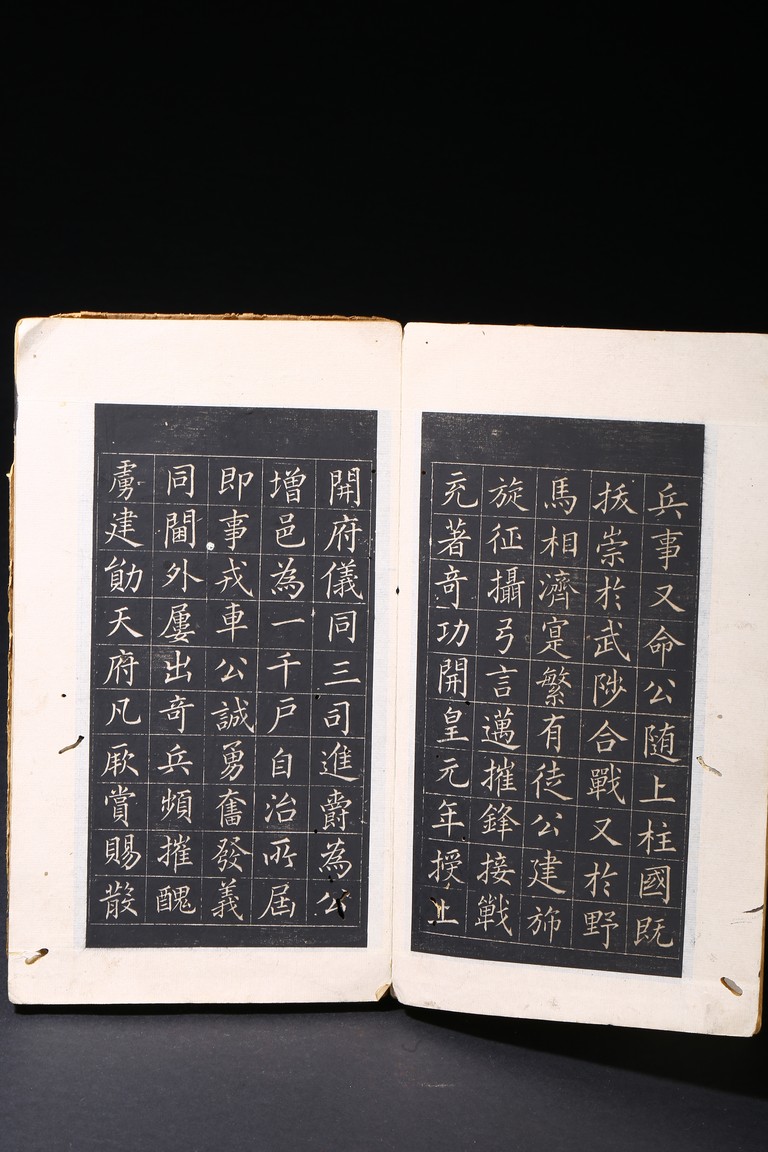 兵事又命公随上柱國既
拔崇於武陟合戰又於野
馬相濟寔繁有徒公建斾
旋征攝弓言邁摧鋒接戰
克著竒功開皇元年授上
開府儀同三司進爵為公
增邑為一千戶自治所屆
即事戎車公誠勇奮發義
同閫外屢出竒兵頻摧醜
虜建勛天府凡厥賞賜散